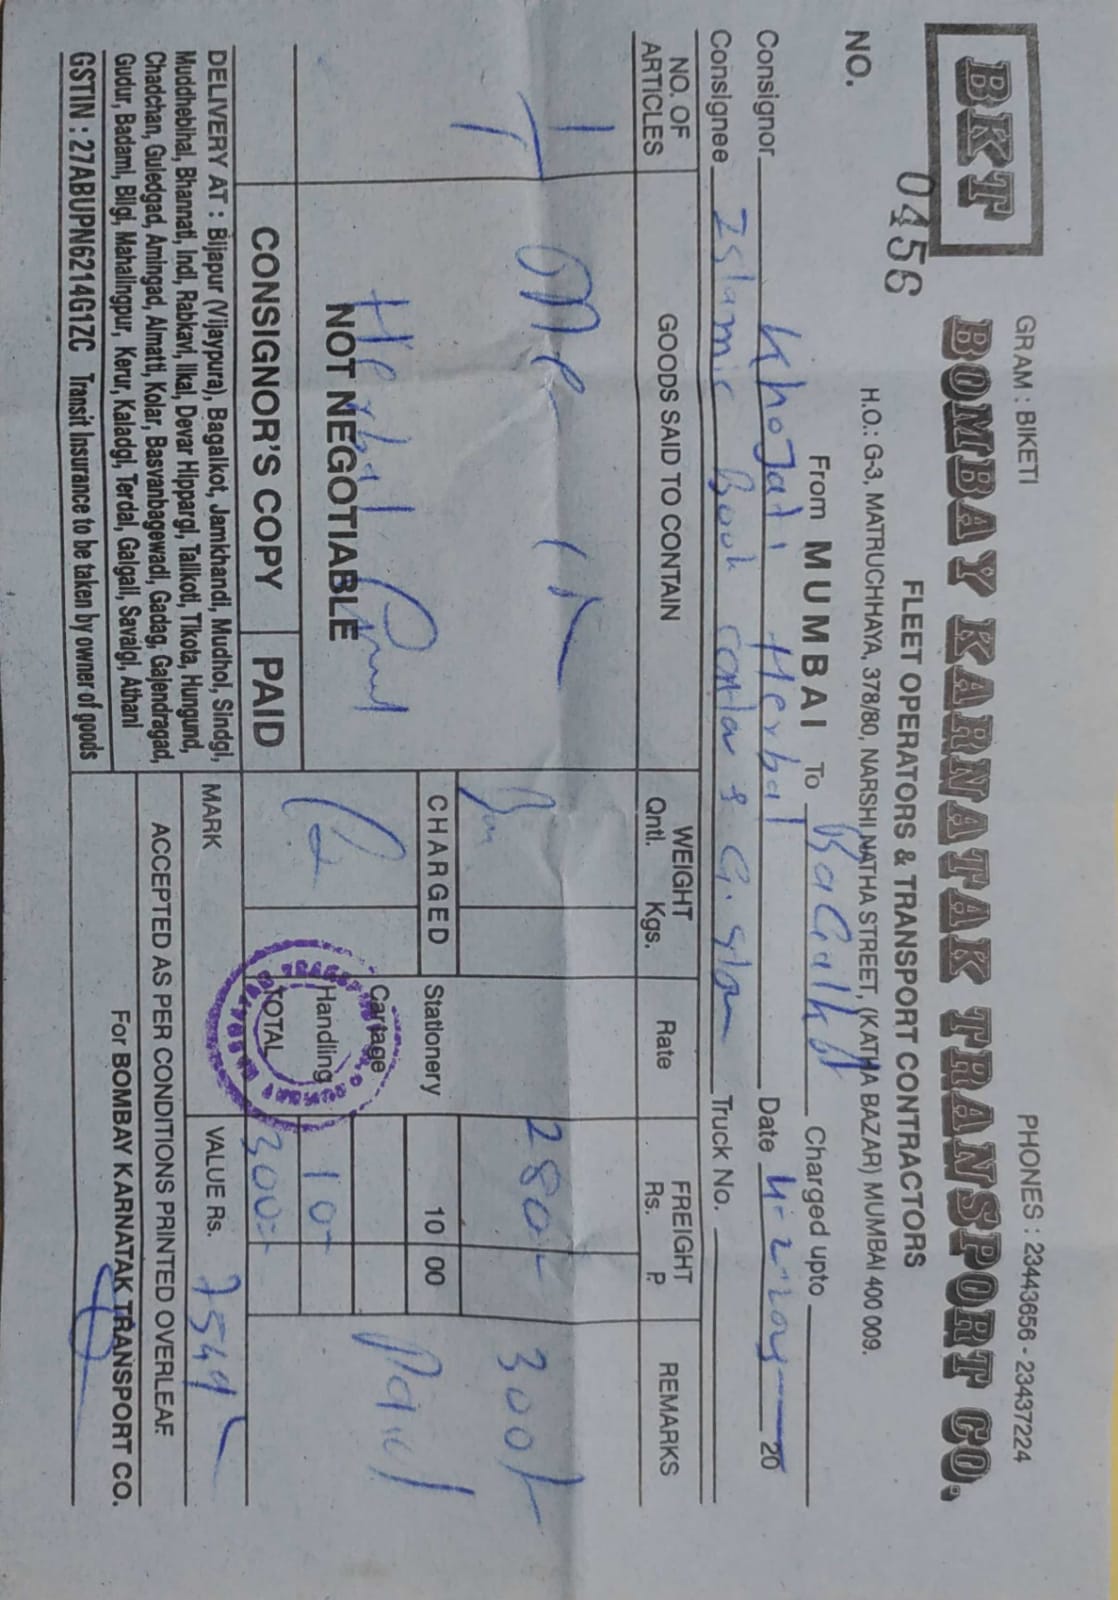 BKT
GRAM : BIKETI
PHONES : 23443656 - 23437224
BOMBAY KARNATAK TRANSPORT CO.
FLEET OPERATORS & TRANSPORT CONTRACTORS
H.O.: G-3, MATRUCHHAYA, 378/80, NARSHI NATHA STREET, (KATHA BAZAR) MUMBAI 400 009.
NO. 0456
From MUMBAI To Bagalkot Charged upto
Consignor Khojati Herbal Date 20
Consignee Islamic Book Truck No.
NO. OF ARTICLES GOODS SAID TO CONTAIN WEIGHT Qntl. Kgs. Rate FREIGHT Rs. P. REMARKS
1 One 280/- 300/-
Herbal Paid
CHARGED Stationery 10 00
Cartage
Handling 10-
TOTAL 300/-
NOT NEGOTIABLE
CONSIGNOR'S COPY PAID
DELIVERY AT : Bijapur (Vijaypura), Bagalkot, Jamkhandi, Mudhol, Sindgi,
Muddhebihal, Bhannati, Indi, Rabkavi, Ilkal, Devar Hippargi, Talikoti, Tikota, Hungund,
Chadchan, Guledgad, Amingad, Almatti, Kolar, Basvanbagewadi, Gadag, Gajendragad,
Gudur, Badami, Bilgi, Mahalingpur, Kerur, Kaladgi, Terdal, Galgali, Savalgi, Athani
GSTIN : 27ABUPN6214G1ZC Transit Insurance to be taken by owner of goods
MARK VALUE Rs. 7549
ACCEPTED AS PER CONDITIONS PRINTED OVERLEAF.
For BOMBAY KARNATAK TRANSPORT CO.